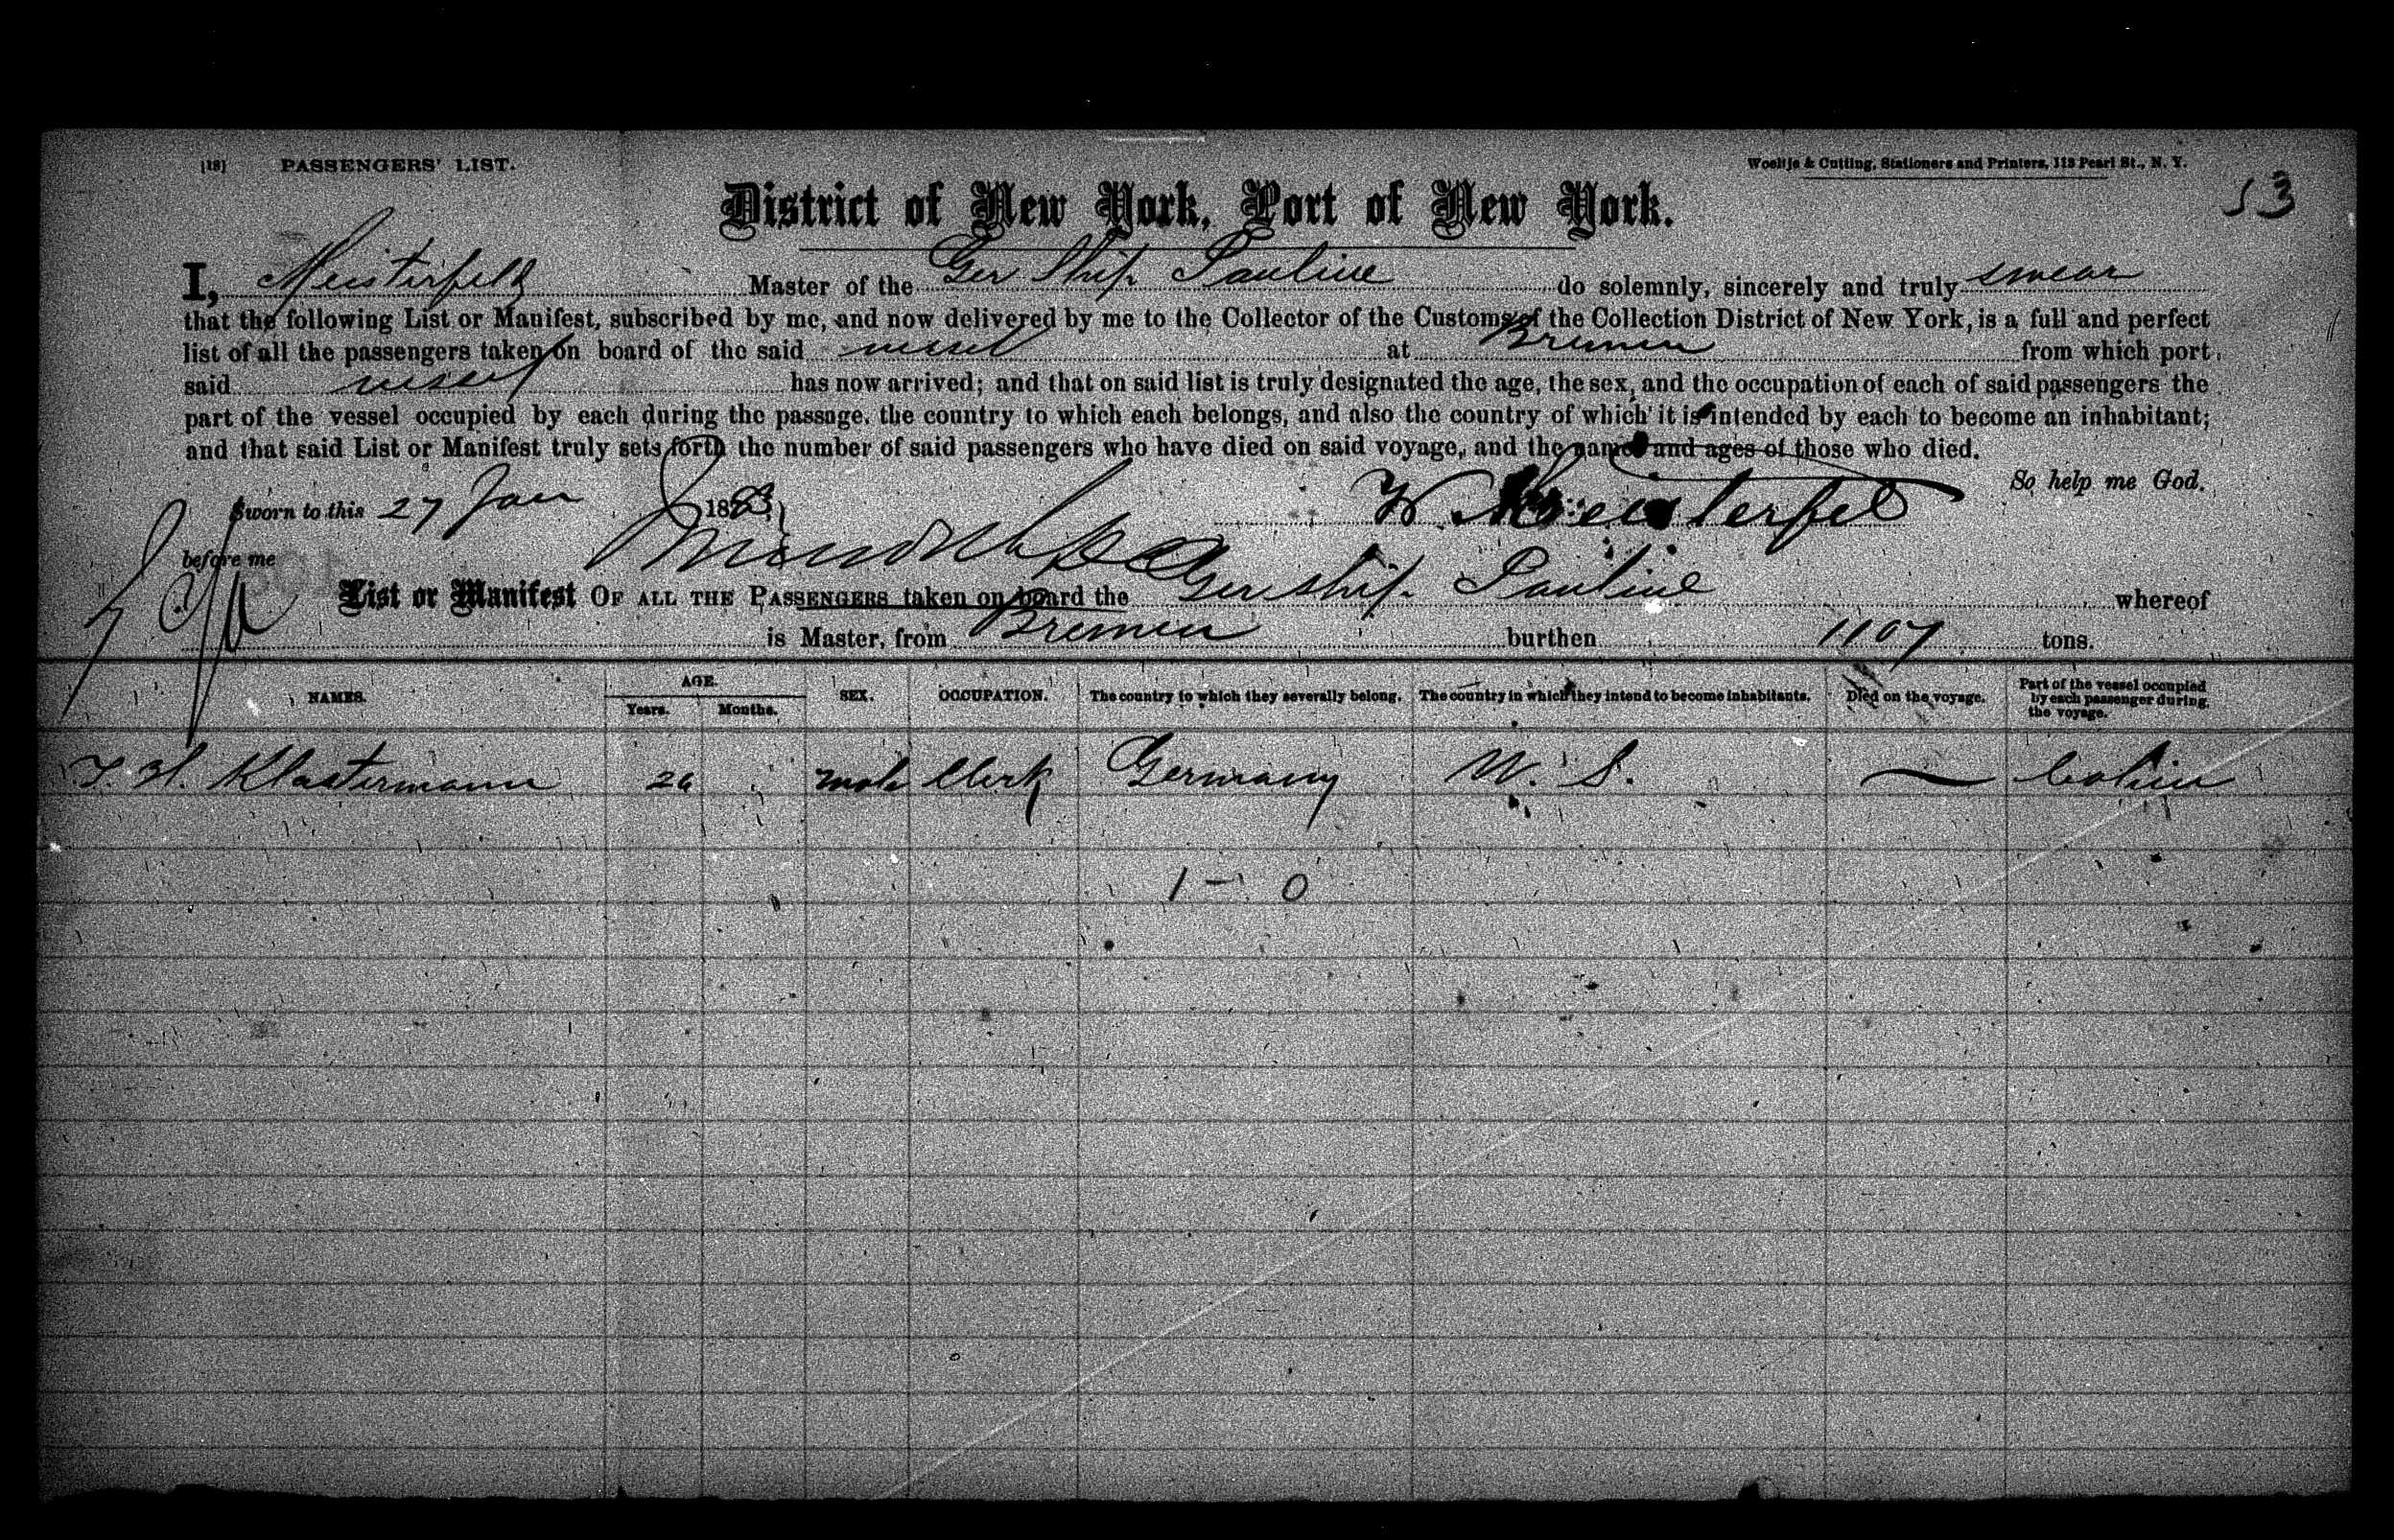 [18] PASSENGERS' LIST.
Woeltje & Cutting, Stationers and Printers, 113 Pearl St., N. Y.
53
District of New York, Port of New York.
I, Meisterfeld Master of the Ger Ship Pauline do solemnly, sincerely and truly swear
that the following List or Manifest, subscribed by me, and now delivered by me to the Collector of the Customs of the Collection District of New York, is a full and perfect
list of all the passengers taken on board of the said vessel at Bremen from which port
said vessel has now arrived; and that on said list is truly designated the age, the sex, and the occupation of each of said passengers the
part of the vessel occupied by each during the passage, the country to which each belongs, and also the country of which it is intended by each to become an inhabitant;
and that said List or Manifest truly sets forth the number of said passengers who have died on said voyage, and the names and ages of those who died.
So help me God.
Sworn to this 27 Jan 1883
W. Meisterfeld
before me
List or Manifest OF ALL THE PASSENGERS taken on board the Ger ship Pauline whereof
is Master, from Bremen burthen 1107 tons.
NAMES. AGE. Years. Months. SEX. OCCUPATION. The country to which they severally belong. The country in which they intend to become inhabitants. Died on the voyage. Part of the vessel occupied by each passenger during the voyage.
Klostermann 26 male Clerk Germany U. S. — Cabin
1 — 0